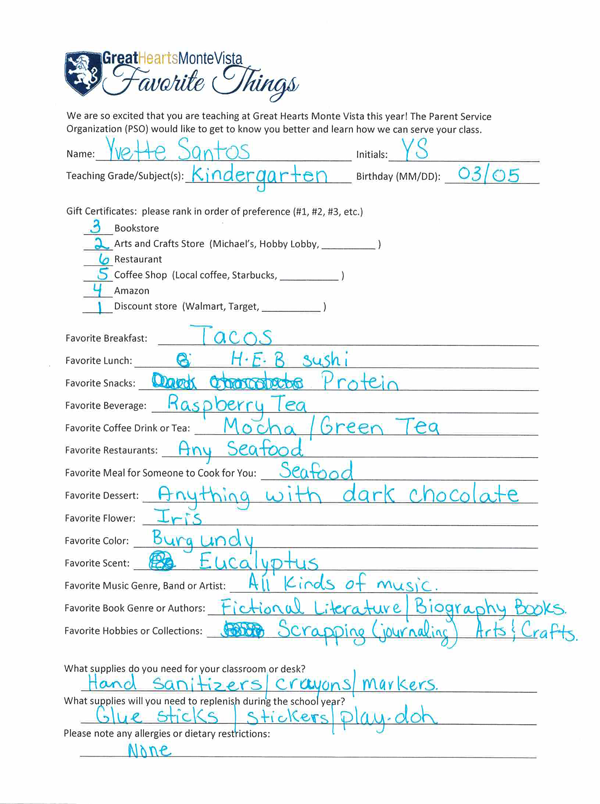 GreatHeartsMonteVista
Favorite Things
We are so excited that you are teaching at Great Hearts Monte Vista this year! The Parent Service
Organization (PSO) would like to get to know you better and learn how we can serve your class.
Name: Yvette Santos Initials: YS
Teaching Grade/Subject(s): Kindergarten Birthday (MM/DD): 03/05
Gift Certificates: please rank in order of preference (#1, #2, #3, etc.)
3 Bookstore
2 Arts and Crafts Store (Michael's, Hobby Lobby, __________ )
6 Restaurant
5 Coffee Shop (Local coffee, Starbucks, ___________ )
4 Amazon
1 Discount store (Walmart, Target, ___________ )
Favorite Breakfast: Tacos
Favorite Lunch: H.E.B sushi
Favorite Snacks: Dark chocolate Protein
Favorite Beverage: Raspberry Tea
Favorite Coffee Drink or Tea: Mocha / Green Tea
Favorite Restaurants: Any Seafood
Favorite Meal for Someone to Cook for You: Seafood
Favorite Dessert: Anything with dark chocolate
Favorite Flower: Iris
Favorite Color: Burgundy
Favorite Scent: Eucalyptus
Favorite Music Genre, Band or Artist: All Kinds of music.
Favorite Book Genre or Authors: Fictional Literature/ Biography Books.
Favorite Hobbies or Collections: Scrapping (journaling) Arts & Crafts.
What supplies do you need for your classroom or desk?
Hand sanitizers/ crayons/ markers.
What supplies will you need to replenish during the school year?
Glue sticks / stickers/ play-doh
Please note any allergies or dietary restrictions:
None